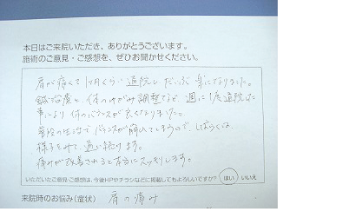 本日はご来院いただき、ありがとうございます。
施術のご意見・ご感想を、ぜひお聞かせください。
肩が痛くて1ヶ月くらい通院し、だいぶ楽になりました。
鍼治療と、体のゆがみ調整などで週に1度通院した
事により、体のバランスが良くなりました。
普段の生活でバランスが崩れてしまうので、しばらくは
様子をみて、通い続けます。
痛みが改善されると本当にスッキリします。
いただいたご意見・ご感想は、今後HPやチラシなどに掲載してもよろしいですか? はい・いいえ
来院時のお悩み(症状) 肩の痛み